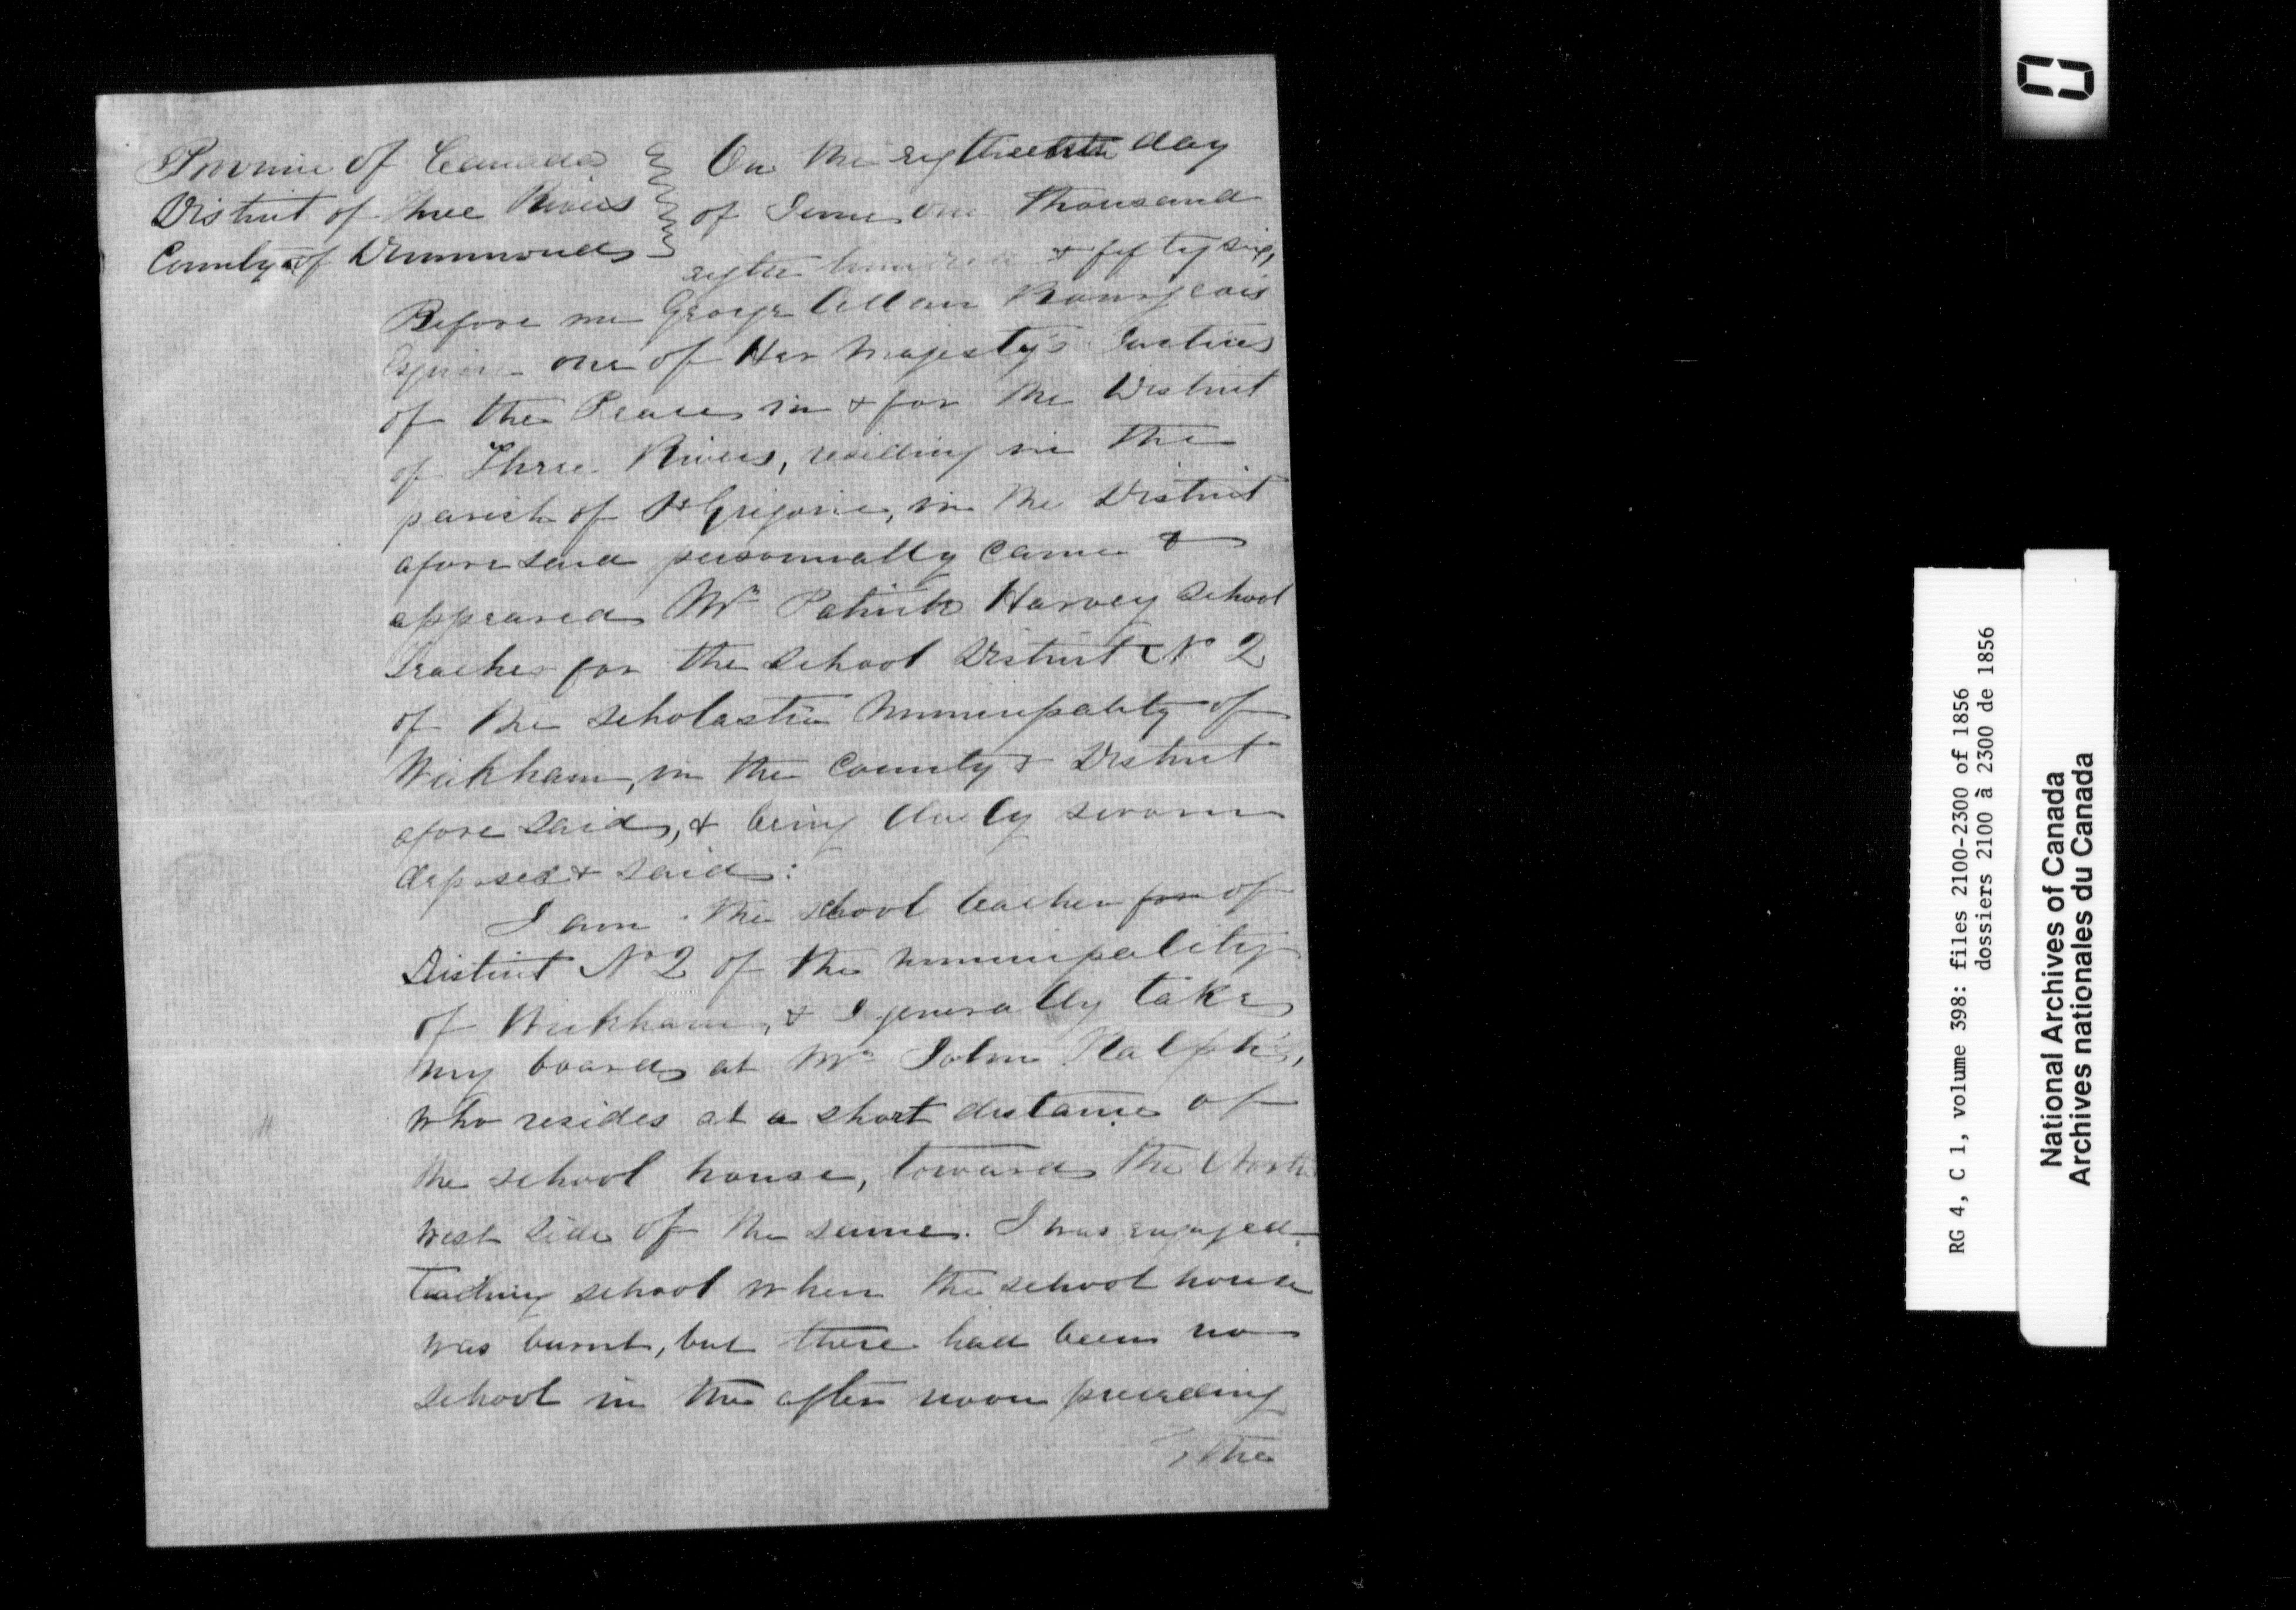 Province of Canada
District of Three Rivers
County of Drummond
On the eighteenth day
of June one thousand
eight hundred & fifty six,
Before me George Allan Bourgeois
Esquire one of Her Majesty's Justices
of the Peace in & for the District
of Three Rivers, residing in the
parish of St Grégoire, in the District
afore said personnally came &
appeared Mr Patrick Harvey School
Teacher for the School District No 2
of the Scholastic Municipality of
Wickham, in the County & District
afore said, & being duely sworn
deposed & said:
I am the school teacher for of
District No 2 of the municipality
of Wickham, & I generally take
my board at Mr John Ralph's,
who resides at a short distance of
the school house, toward the North
west side of the same. I was engaged
teaching school when the school house
was burnt, but there had been no
school in the after noon preceeding
the
RG 4, C 1, volume 398: files 2100-2300 of 1856
dossiers 2100 à 2300 de 1856
National Archives of Canada
Archives nationales du Canada